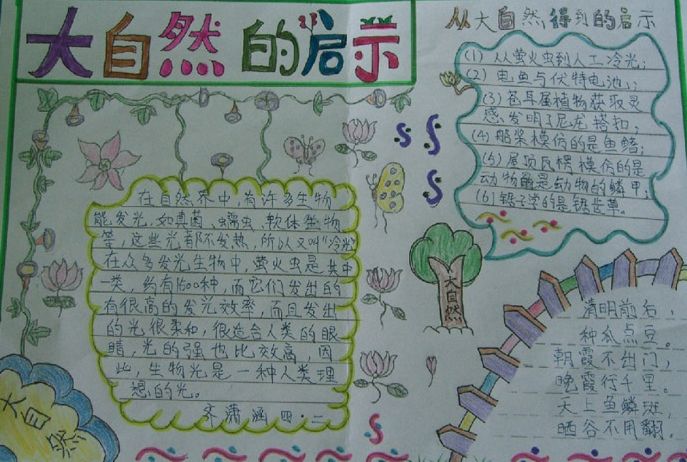 大自然的启示
从大自然得到的启示
(1) 从萤火虫到人工冷光；
(2) 电鱼与伏特电池；
(3) 苍耳属植物获取灵
感发明了尼龙搭扣；
(4) 船桨模仿的是鱼鳍；
(5) 屋顶瓦楞模仿的是
动物是动物的鳞甲；
(6) 锯子学的是锯齿草。
在自然界中，有许多生物
能发光，如真菌、蠕虫、软体生物
等，这些光都不发热，所以又叫“冷光”
在众多发光生物中，萤火虫是其中
一类，约有1500种，而它们发出的
有很高的发光效率，而且发出
的光很柔和，很适合人类的眼
睛，光的强也比较高，因
此，生物光是一种人类理
想的光。
潇涵 四·二
大自然
大自然
清明前后，
种瓜点豆。
朝霞不出门，
晚霞行千里。
天上鱼鳞斑，
晒谷不用翻。